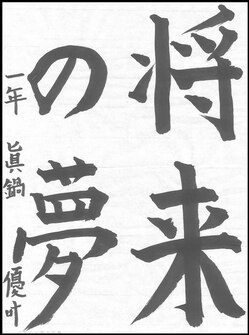 将来
の夢
一年 眞鍋 優叶